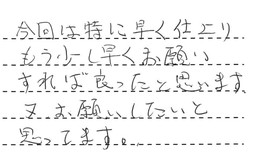 今回は特に早く仕上り
もう少し早くお願い
すれば良ったと思います
又お願いしたいと
思ってます。